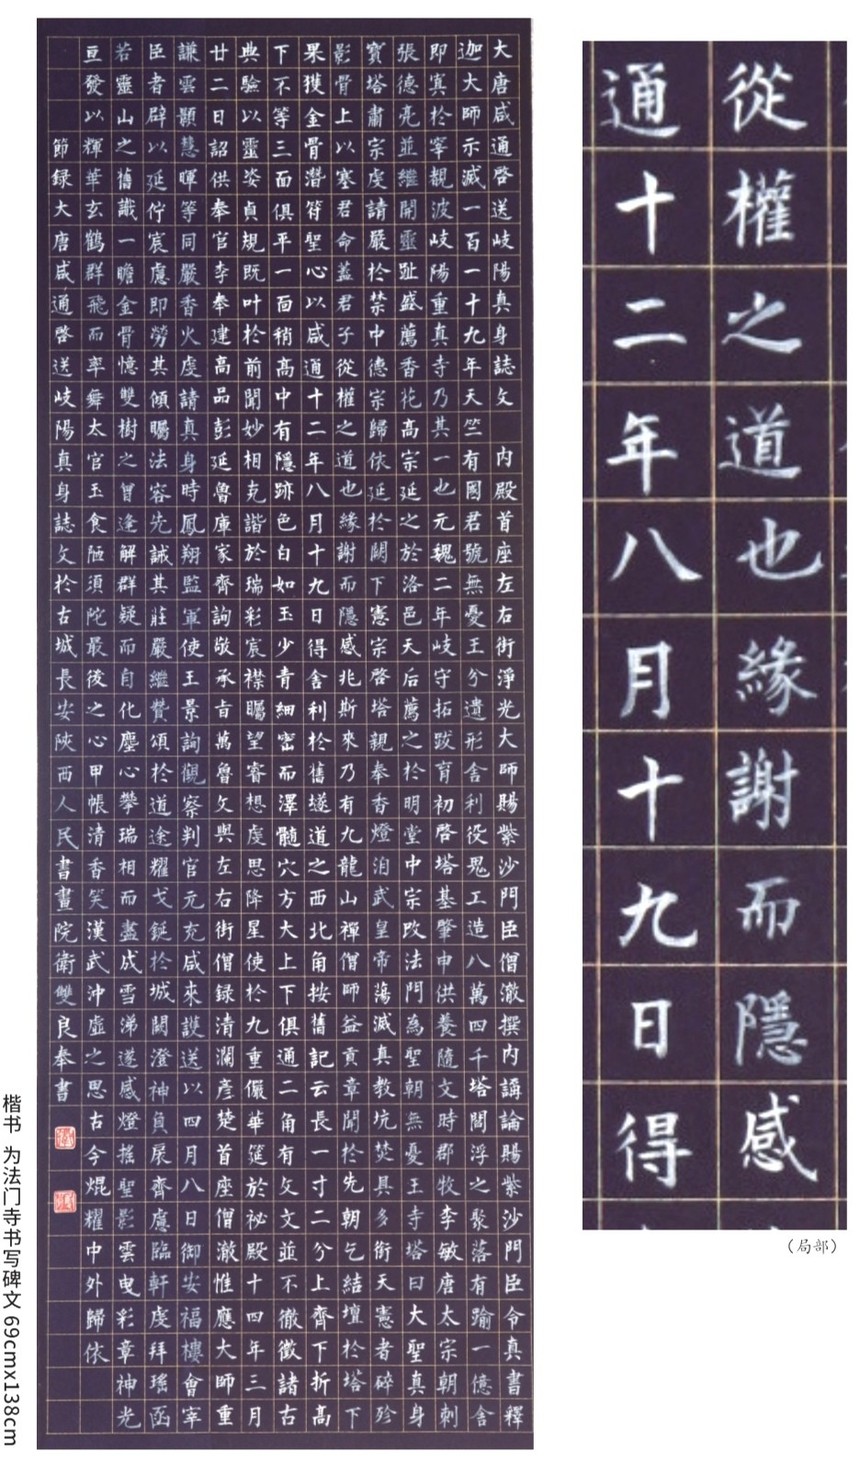 大唐咸通啓送岐陽真身誌文 內殿首座左右街淨光大師賜紫沙門臣僧澈撰內講論賜紫沙門臣令真書釋
迦大師示滅一百一十九年天竺有國君號無憂王分遺形舍利役鬼工造八萬四千塔閻浮之聚落有踰一億舍
即寘於宰覩波岐陽重真寺乃其一也元魏二年岐守拓跋育初啓塔基肇申供養隨文時郡牧李敏唐太宗朝刺
張德亮並繼開靈趾盛薦香花高宗延之於洛邑天后薦之於明堂中宗改法門為聖朝無憂王寺塔曰大聖真身
寶塔肅宗虔請嚴於禁中德宗歸依延於闕下憲宗啓塔親奉香燈洎武皇帝蕩滅真教坑焚具多銜天憲者碎殄
影骨上以塞君命蓋君子從權之道也緣謝而隱感兆斯來乃有九龍山禪僧師益貢章聞於先朝乞結壇於塔下
果獲金骨潛符聖心以咸通十二年八月十九日得舍利於舊隧道之西北角按舊記云長一寸二分上齊下折高
下不等三面俱平一面稍高中有隱跡色白如玉少青細密而澤髓穴方大上下俱通二角有文文並不徹徵諸古
典驗以靈姿貞規既叶於前聞妙相克諧於瑞彩宸襟矚望睿想虔思降星使於九重儼華筵於祕殿十四年三月
廿二日詔供奉官李奉建高品彭延魯庫家齊詢敬承旨萬魯文與左右街僧録清瀾彥楚首座僧澈惟應大師重
謙雲顥慧暉等同嚴香火虔請真身時鳳翔監軍使王景詢觀察判官元充咸來護送以四月八日御安福樓會宰
臣者辟以延佇宸慮即勞其傾矚法容先誠其莊嚴繼贊頌於道途耀戈鋋於城闕澄神負扆齊慮臨軒虔拜瑤函
若靈山之舊識一瞻金骨憶雙樹之曾逢解群疑而自化塵心攀瑞相而盡成雪涕遂感燈搖聖影雲曳彩章神光
亘發以輝華玄鶴群飛而率舞太官玉食陋須陀最後之心甲帳清香笑漢武沖虛之思古今焜耀中外歸依
節録大唐咸通啓送岐陽真身誌文於古城長安陝西人民書畫院衛雙良奉書
從權之道也緣謝而隱感
通十二年八月十九日得
(局部)
楷书 为法门寺书写碑文 69cmx138cm